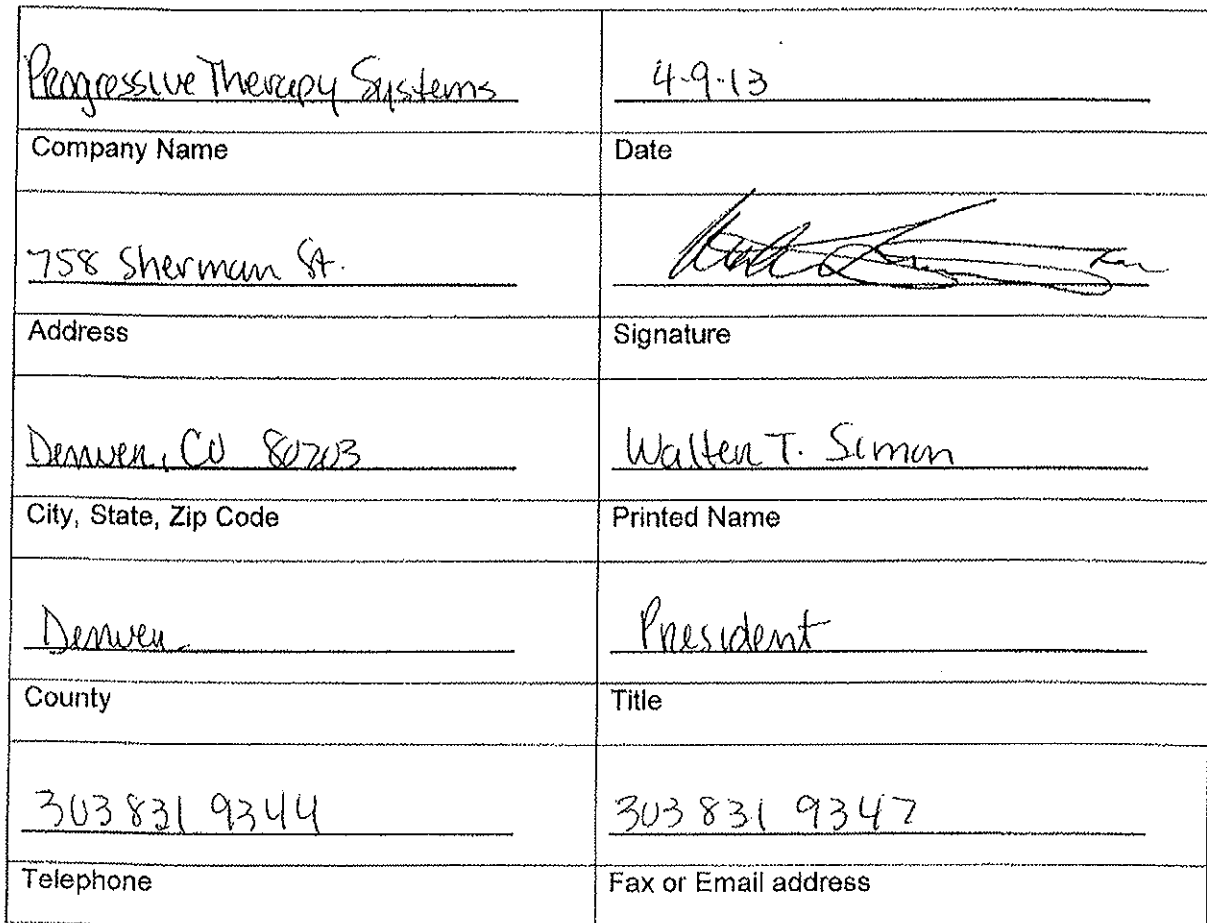 Progressive Therapy Systems 4-9-13
Company Name Date
758 Sherman St.
Address Signature
Denver, CO 80203 Walter T. Simon
City, State, Zip Code Printed Name
Denver President
County Title
303 831 9344 303 831 9347
Telephone Fax or Email address